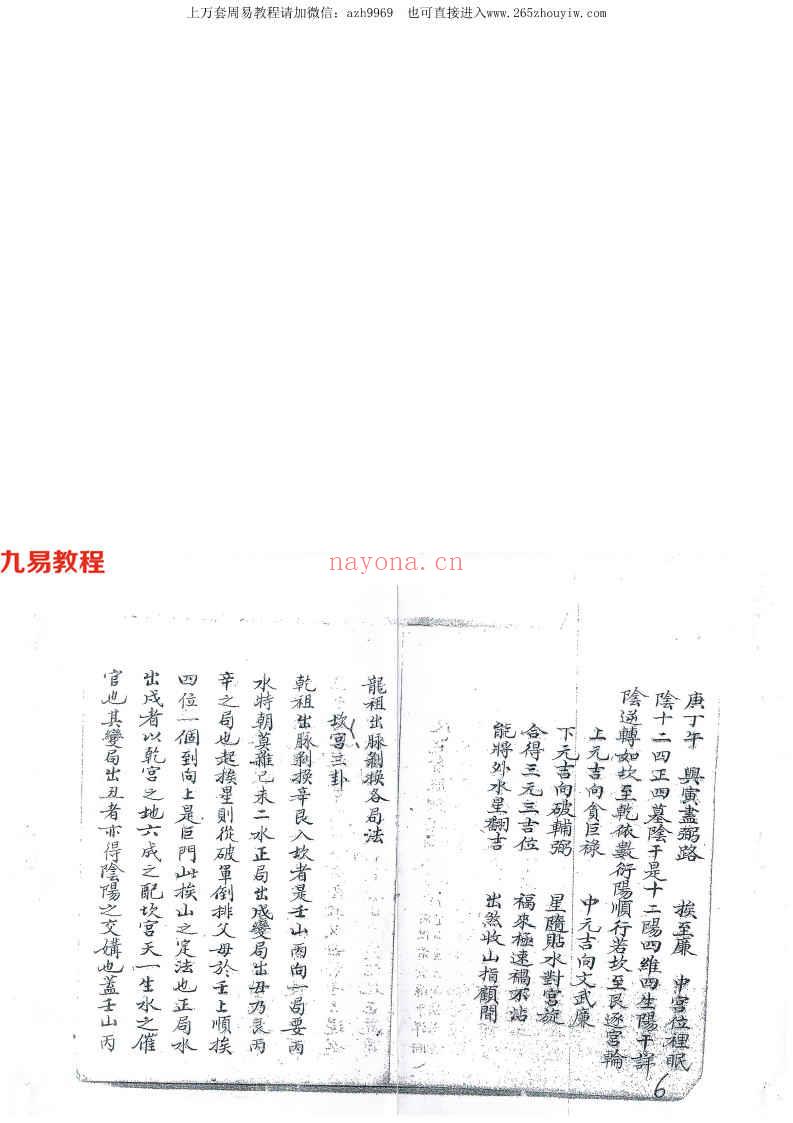 上万套周易教程请加微信：azh9969　也可直接进入www.265zhouyiw.com
九易教程
nayona.cn
庚丁午　興寅盡弼路　挨至廉　中宮位裡眠
陰十二四正四墓陰干是十二陽四維四生陽干詳
陰逆轉如坎至乾依數衍陽順行若坎至艮逐宮輪
上元吉向貪巨祿　中元吉向文武廉
下元吉向破輔弼　星隨貼水對宮旋
合得三元三吉位　福來極速禍不沾
能將外水星翻吉　出煞收山指顧間
6
龍祖出脉剝換各局法
坎宮三卦
乾祖出脉剝換辛艮入坎者是壬山丙向一局要丙
水特朝莫雜己未二水正局出戍變局出丑乃艮丙
辛之局也起挨星則從破軍倒排父母於壬上順挨
四位一個到向上是巨門山挨山之定法也正局水
出戍者以乾宮之地六成之配坎宮天一生水之催
官也其變局出丑者亦得陰陽之交媾也蓋壬山丙